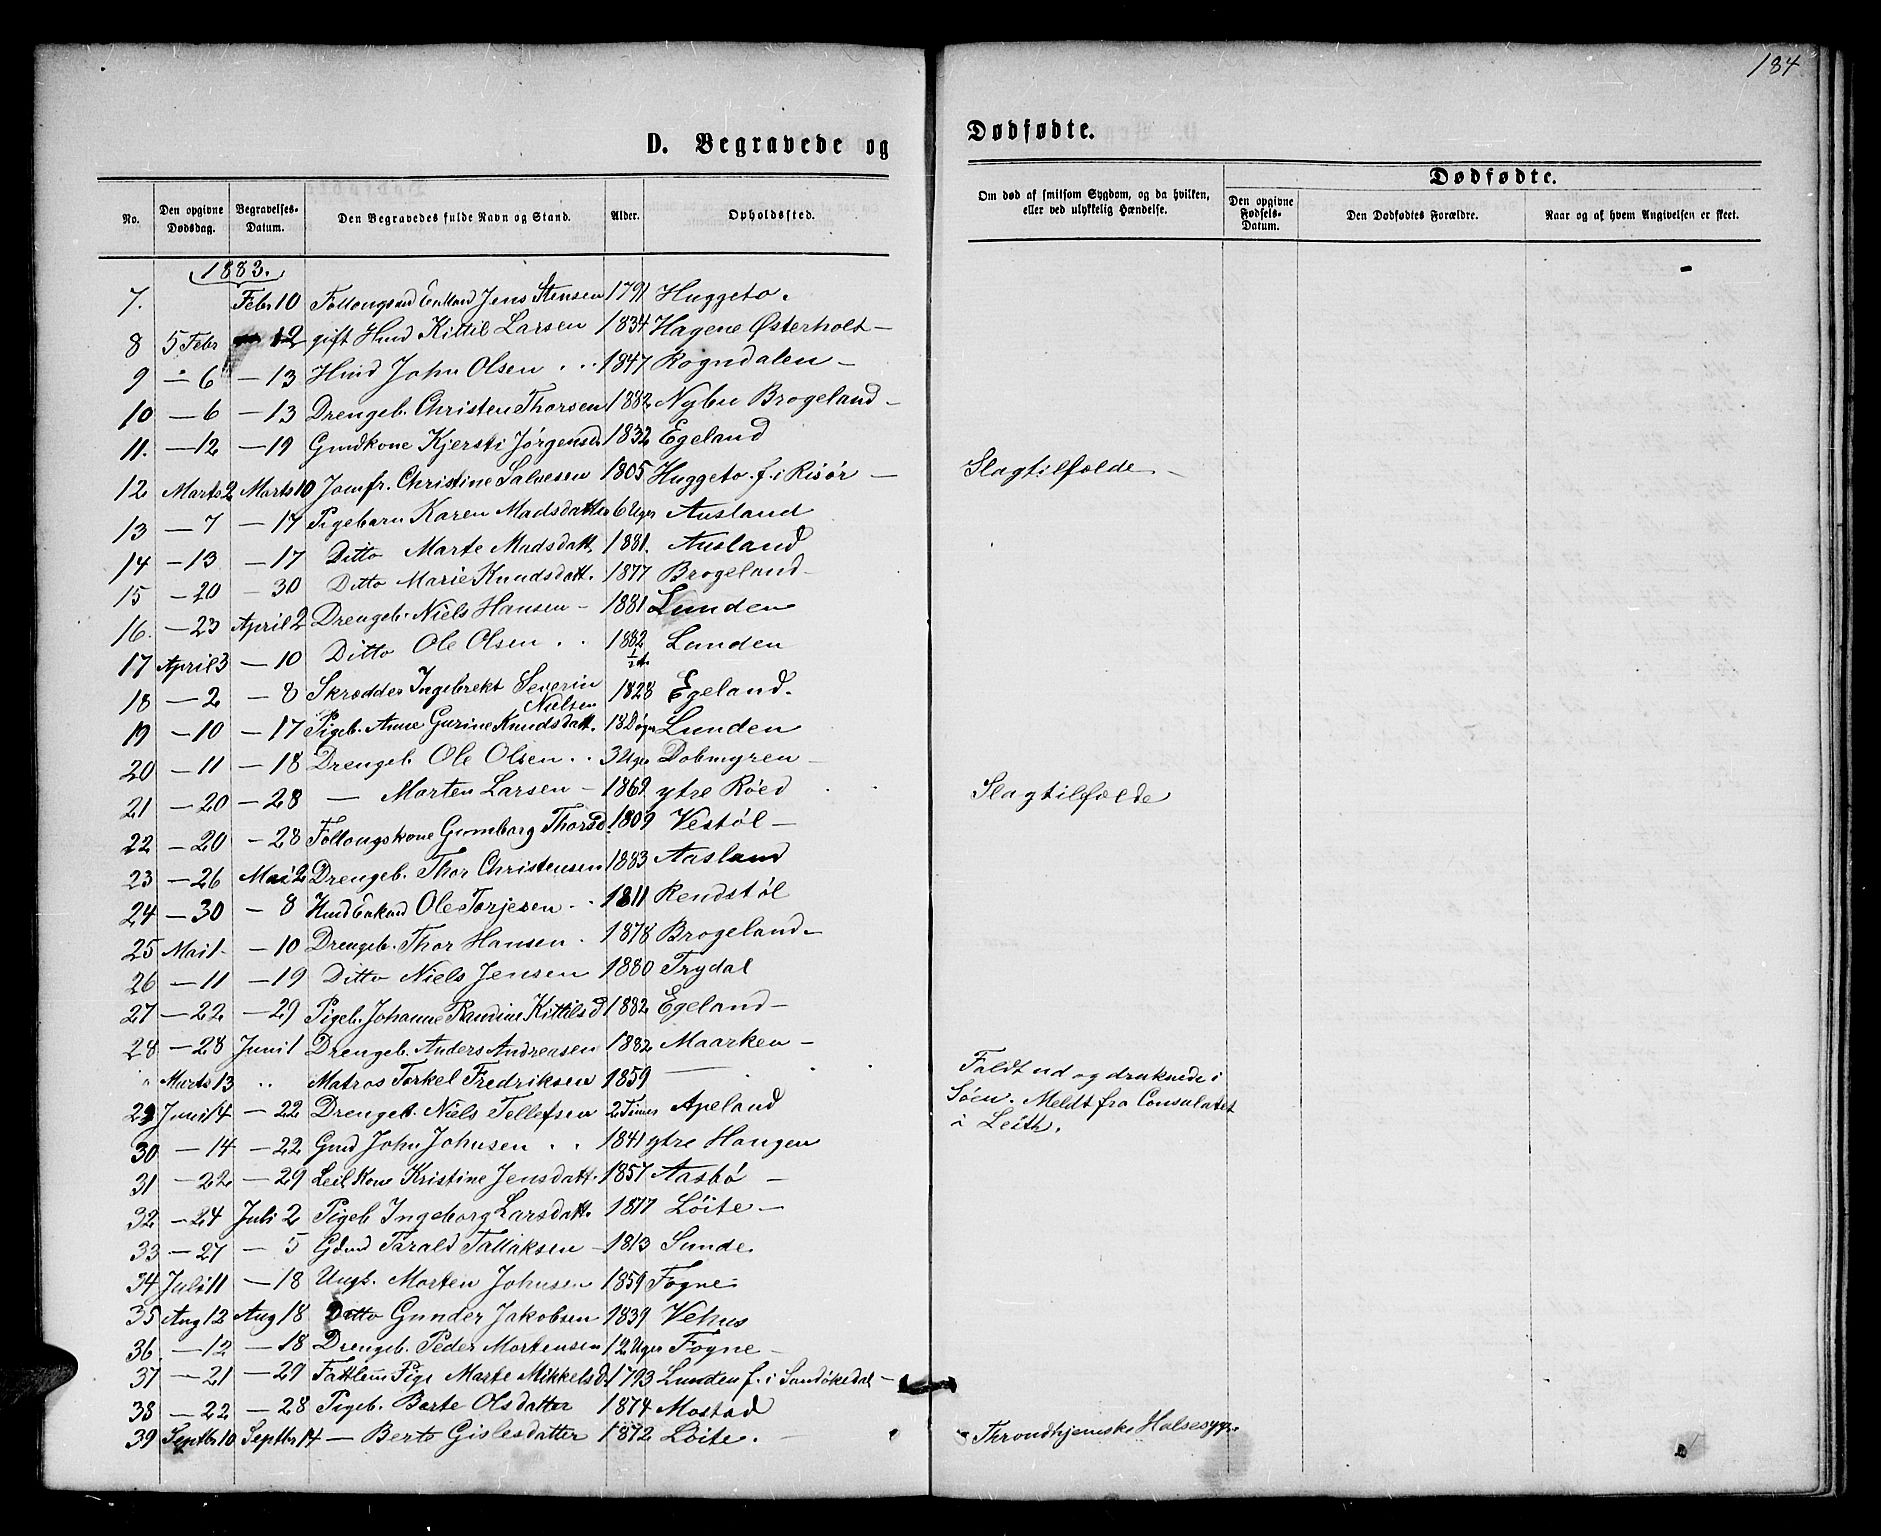 184
D. Begravede og Dødfødte.
No. | Den opgivne Dødsdag. | Begravelses-Datum. | Den Begravedes fulde Navn og Stand. | Alder. | Opholdssted. | Om død af smitsom Sygdom, og da hvilken, eller ved ulykkelig Hændelse. | Dødfødte. | Den opgivne Fødsels-Datum. | Den Dødfødtes Forældre. | Naar og af hvem Angivelsen er skeet.
1883.
7. Febr 10 Follaugsmd Enkmd Jens Stensen 1791 Huggeto.
8 5 Febr 12 gift Hmd Kittil Larsen 1834 Hagene Østerholt -
9 - 6 - 13 Hmd John Olsen .. 1847 Rogndalen -
10 - 6 - 13 Drengeb. Christen Thorsen 1882 Nybu Brogeland -
11. - 12 - 19 Gmdkone Kjersti Jørgensd 1832 Egeland
12 Marts 2 Marts 10 Jomfr. Christine Salvesen 1805 Huggeto. f. i Risør - Slagtilfælde -
13 - 7 - 17 Pigebarn Karen Madsdatter 6 Uger Ausland
14 - 13 - 17 Ditto Marte Madsdatt. 1881. Ausland
15 - 20 - 30 Ditto Marie Knudsdatt. 1877 Brogeland -
16. - 23 April 2 Drengeb. Niels Hansen - 1881 Lunden
17 April 3 - 10 Ditto Ole Olsen .. 1882 Lunden
18 - 2 - 8 Skrædder Ingebrekt Severin Nielsen 1828 Egeland.
19 - 10 - 17 Pigeb. Anne Gurine Knudsdatt. 18 Døgn Lunden
20 - 11 - 18 Drengeb Ole Olsen .. 3 Uger Dobmyren -
21 - 20 - 28 - Morten Larsen - 1869 ytre Røed Slagtilfælde
22 - 20 - 28 Follaugskone Gunnborg Thorsd. 1809 Vestøl -
23 - 26 Mai 2 Drengeb. Thor Christensen 1883 Aasland
24 - 30 - 8 Hmd Enkmd Ole Torjesen .. 1811 Rendstøl
25 Mai 1 - 10 Drengeb. Thor Hansen . 1878 Brogeland -
26 - 11 - 19 Ditto Niels Jensen 1880 Trydal
27 - 22 - 29 Pigeb. Johanne Randine Kittilsd 1882 Egeland -
28 - 28 Juni 1 Drengeb. Anders Andreasen 1882 Maarken -
" Marts 13 " Matros Torkel Fredriksen 1859 - Faldt ud og druknede i Søen. Meldt fra Consulatet i Leith.
29 Juni 14 - 22 Drengeb. Niels Tellefsen 2 Timer Apeland
30 - 14 - 22 Gmd John Johnsen .. 1841 ytre Haugen
31 - 22 - 29 Leil Kone Kristine Jensdatt. 1857 Aasbø -
32 - 24 Juli 2 Pigeb Ingeborg Larsdatt. 1877 Løite -
33 - 27 - 5 Gdmd Tarald Tallaksen - 1813 Sunde.
34 Juli 11 - 18 Ungk. Morten Johnsen 1859 Fogne
35 Aug 12 Aug 18 Ditto Gunder Jakobsen 1839 Vehus
36 - 12 - 18 Drengeb. Peder Mortensen 12 Uger Fogne -
37 - 21 - 29 Fattlem Pige Marte Mikkelsd. 1793 Lunden f. i Sandøkedal -
38 - 22 - 28 Pigeb. Berte Olsdatter 1874 Mostad
39 Septbr 10 Septbr 14 - Berte Gislesdatter 1872 Løite. - Throndhjemske Halsesyge